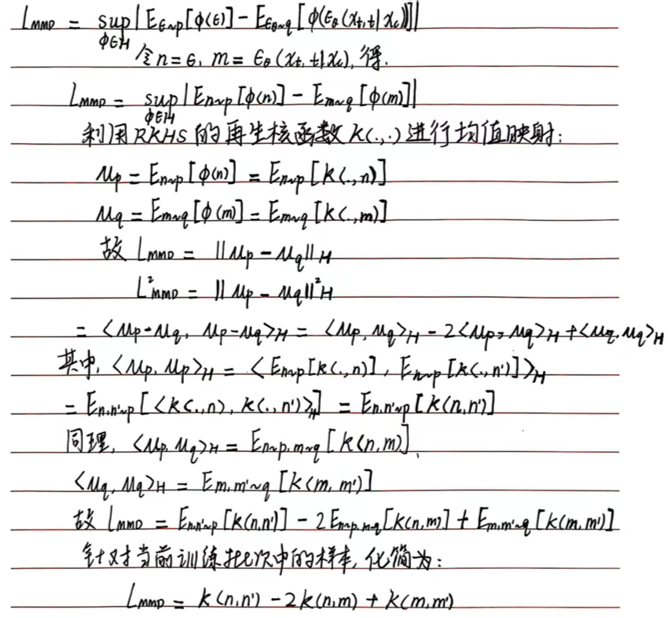 L_MMD = sup_{ϕ∈H} |E_{ϵ~p}[ϕ(ϵ)] - E_{ϵ_θ~q}[ϕ(ϵ_θ(x_t, t|x_c))]|
令n=ϵ, m=ϵ_θ(x_t, t|x_c), 得.
L_MMD = sup_{ϕ∈H} |E_{n~p}[ϕ(n)] - E_{m~q}[ϕ(m)]|
利用RKHS的再生核函数K(.,.)进行均值映射:
μ_p = E_{n~p}[ϕ(n)] = E_{n~p}[K(.,n)]
μ_q = E_{m~q}[ϕ(m)] = E_{m~q}[K(.,m)]
故 L_MMD = ||μ_p - μ_q||_H
L²_MMD = ||μ_p - μ_q||²_H
= <μ_p-μ_q, μ_p-μ_q>_H = <μ_p, μ_q>_H - 2<μ_p, μ_q>_H + <μ_q, μ_q>_H
其中, <μ_p, μ_p>_H = <E_{n~p}[K(.,n)], E_{n~p}[K(.,n')]>_H
= E_{n,n'~p}[<K(.,n), K(.,n')>_H] = E_{n,n'~p}[K(n,n')]
同理, <μ_p, μ_q>_H = E_{n~p,m~q}[K(n,m)],
<μ_q, μ_q>_H = E_{m,m'~q}[K(m,m')]
故 L_MMD = E_{n,n'~p}[K(n,n')] - 2E_{n~p,m~q}[K(n,m)] + E_{m,m'~q}[K(m,m')]
针对当前训练批次中的样本, 化简为:
L_MMD = K(n,n') - 2K(n,m) + K(m,m')